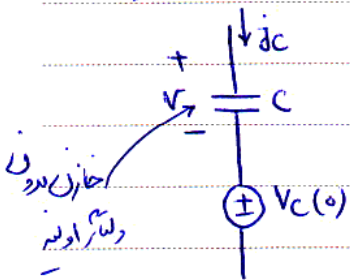 jc
+
V
C
-
خازن بدون
ولتاژ اولیه
±
Vc(0)